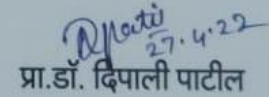 27.4.22
प्रा.डॉ. दिपाली पाटील